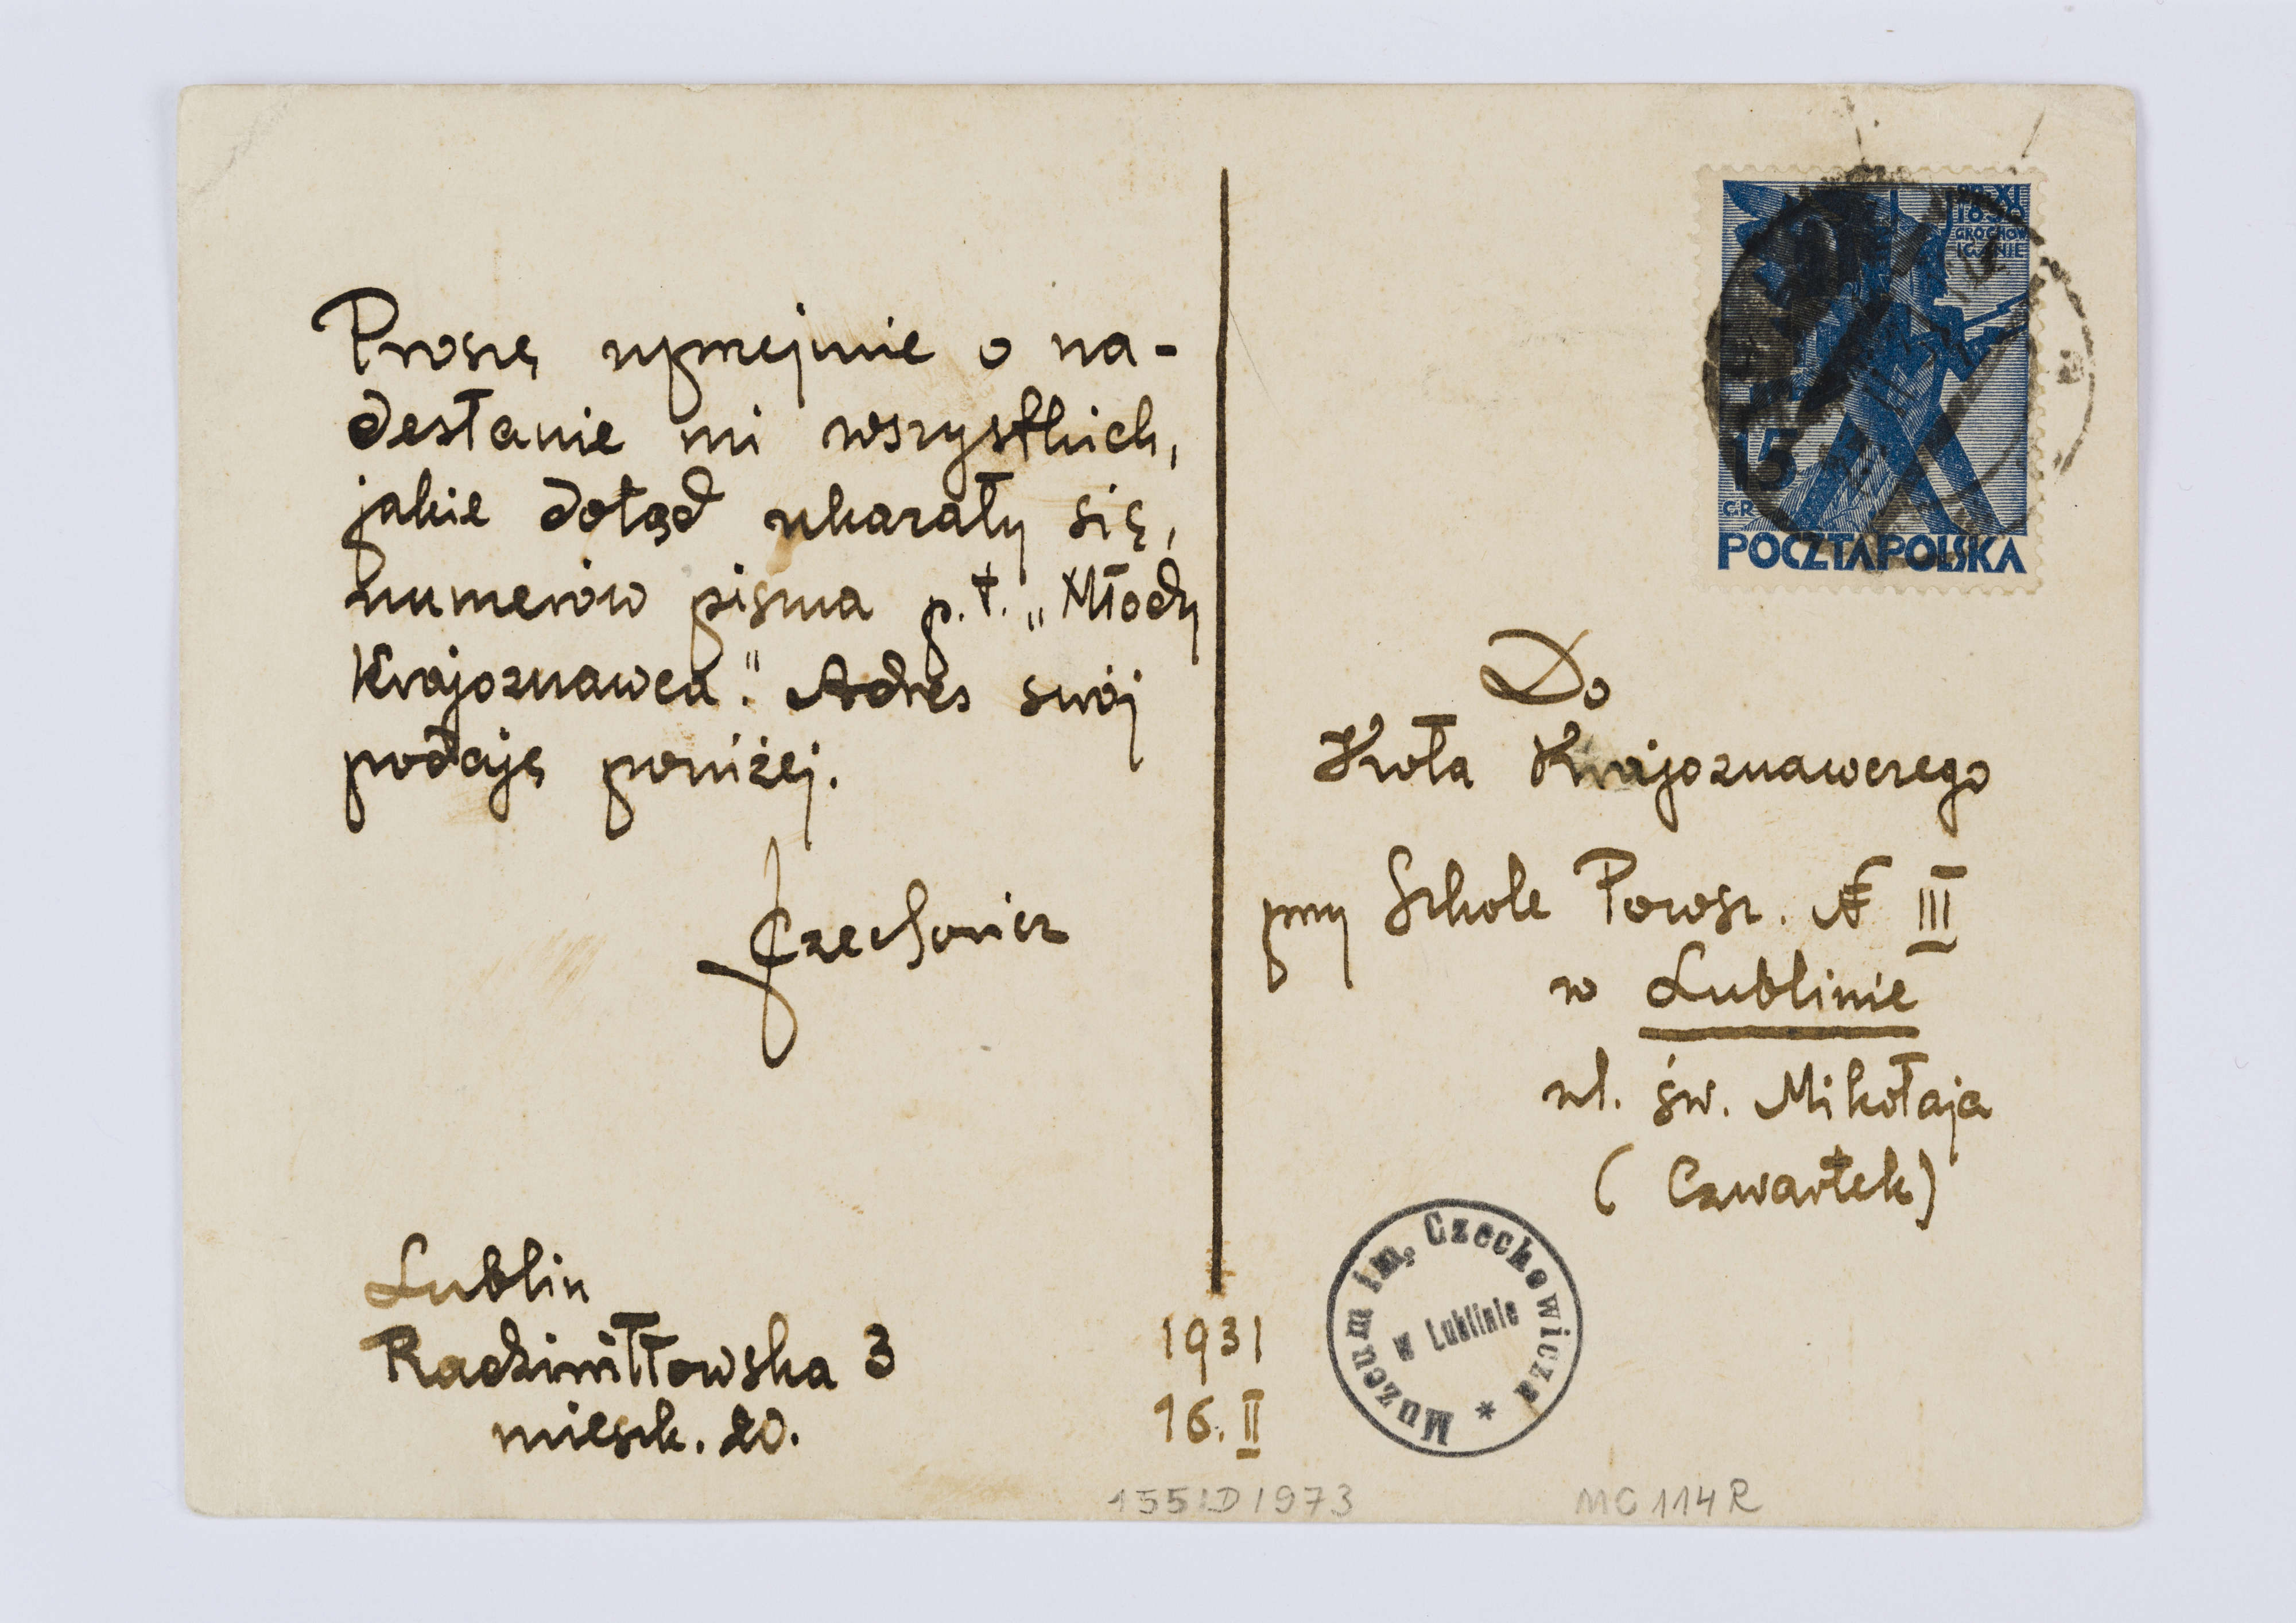 Proszę uprzejmie o na-
desłanie mi wszystkich,
jakie dotąd ukazały się,
numerów pisma p.t. „Młody
Krajoznawca". Adres swój
podaję poniżej.
JCzechowicz
Lublin
Radziwiłłowska 3
mieszk. 20.
1931
16. II
XI
1830
GROCHÓW
IGANIE
15
GR
POCZTA POLSKA
Do
Koła Krajoznawczego
przy Szkole Powsz. № III
w Lublinie
ul. św. Mikołaja
(Czwartek)
Muzeum im. Czechowicza *
w Lublinie
155/D/973
MC 114 R